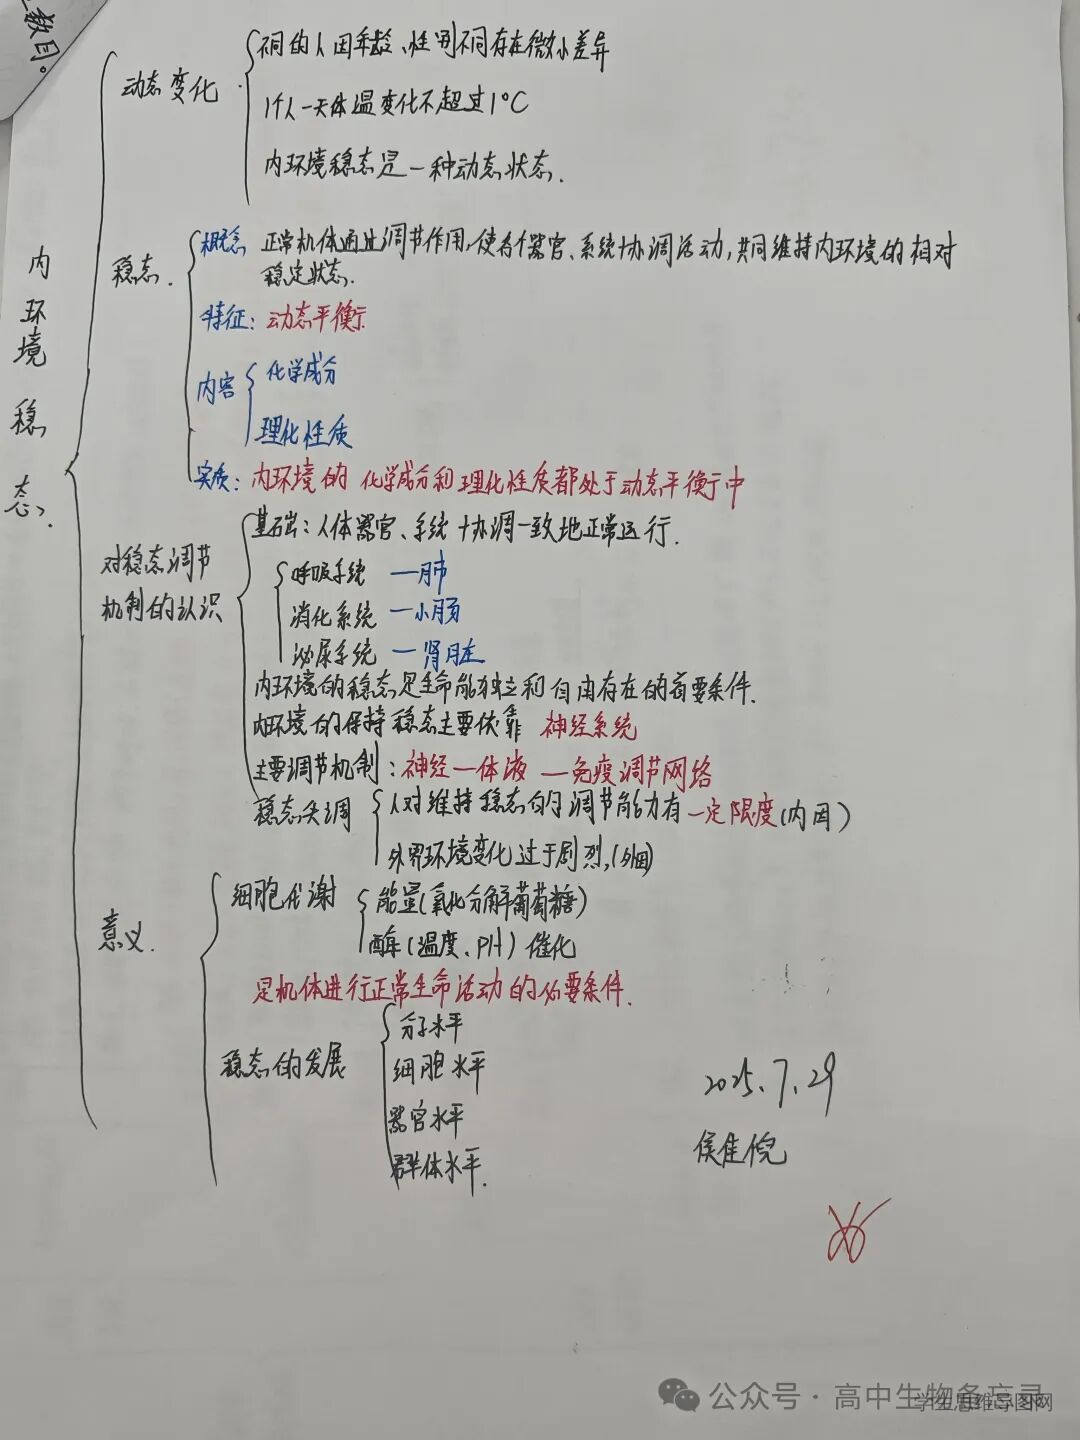 教目。
内环境稳态.
动态变化
不同的人因年龄、性别不同存在微小差异
1个人一天体温变化不超过1°C
内环境稳态是一种动态状态.
稳态.
概念 正常机体通过调节作用,使各个器官、系统协调活动,共同维持内环境的相对
稳定状态.
特征: 动态平衡
内容
化学成分
理化性质
实质: 内环境的 化学成分和理化性质都处于动态平衡中
对稳态调节
机制的认识
基础:人体器官、系统协调一致地正常运行.
呼吸系统 —肺
消化系统 —小肠
泌尿系统 —肾脏
内环境的稳态是生命能独立和自由存在的首要条件.
内环境的保持稳态主要依靠 神经系统
主要调节机制:神经—体液—免疫调节网络
稳态失调
人对维持稳态的调节能力有一定限度(内因)
外界环境变化过于剧烈,(外因)
意义.
细胞代谢
能量(氧化分解葡萄糖)
酶(温度、PH) 催化
是机体进行正常生命活动的必要条件.
稳态的发展
分子水平
细胞水平
器官水平
群体水平.
2025.7.29
侯佳倪
公众号·高中生物备忘录
学生思维导图网